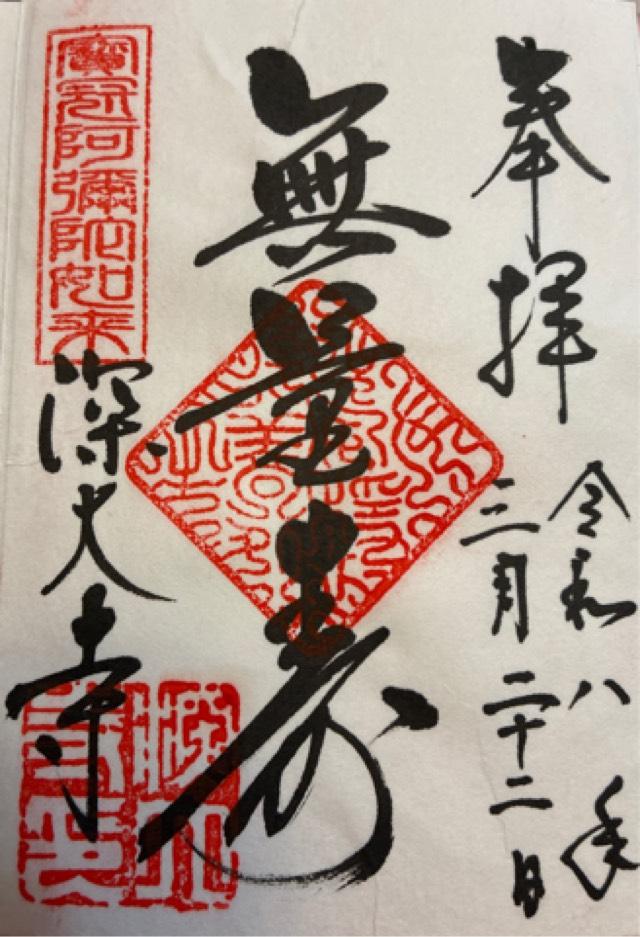 奉拝
令和八年
三月二十二日
無量寿
寳冠阿彌陀如来
深大寺